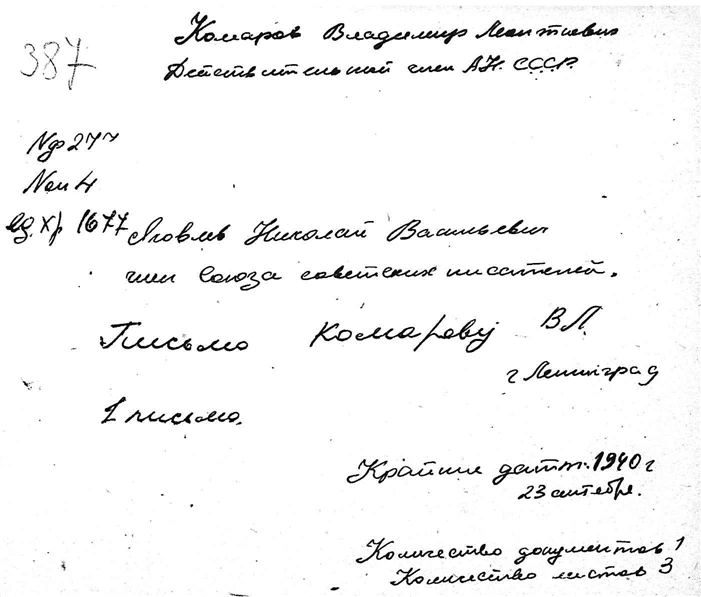 387
Комаров Владимир Леонтиевич
Действительный член АН. СССР.
Nф 277
Nоп 4
ед. хр. 1677 Яковлев Николай Васильевич
член Союза советских писателей.
Письмо Комарову В.Л.
г Ленинград
1 письмо.
Крайние даты: 1940 г
23 октября.
Количество документов 1
Количество листов 3